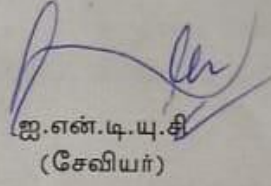 ஐ.என்.டி.யு.சி
(சேவியர்)